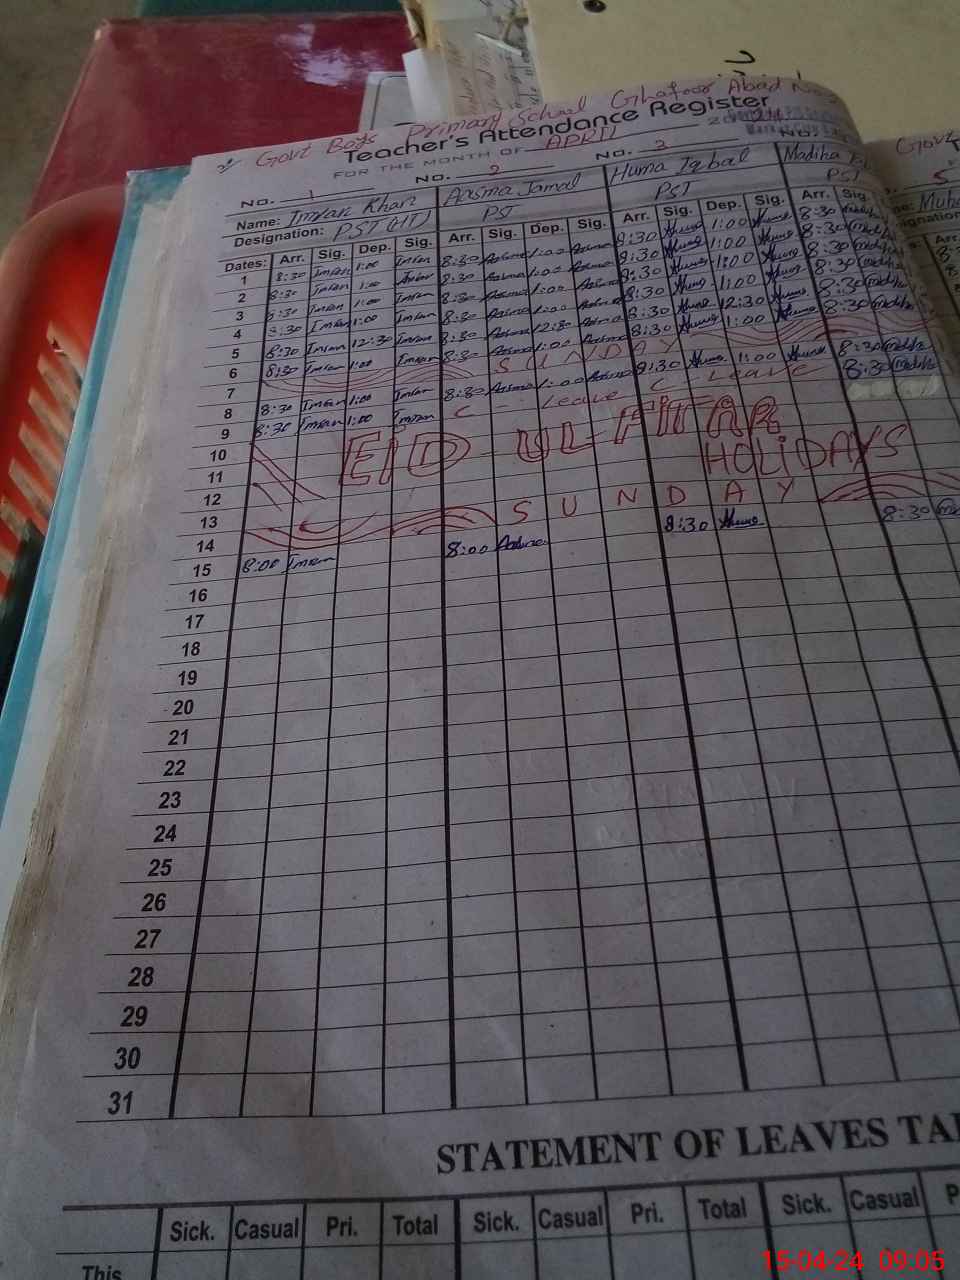 Govt Boys Primary School Ghafoor Abad No
Teacher's Attendance Register
FOR THE MONTH OF APRIL 20
No. 1 No. 2 No. 3 No.
Name: Imran Khan Aasma Jamal Huma Iqbal Madiha
Designation: PST (HT) PST PST PST
Dates: Arr. Sig. Dep. Sig. Arr. Sig. Dep. Sig. Arr. Sig. Dep. Sig. Arr. Sig.
1 8:30 Imran 1:00 Imran 8:30 Aasma 1:00 Aasma 8:30 Huma 1:00 Huma 8:30 Madiha
2 8:30 Imran 1:00 Imran 8:30 Aasma 1:00 Aasma 8:30 Huma 1:00 Huma 8:30 Madiha
3 8:30 Imran 1:00 Imran 8:30 Aasma 1:00 Aasma 8:30 Huma 1:00 Huma 8:30 Madiha
4 8:30 Imran 1:00 Imran 8:30 Aasma 1:00 Aasma 8:30 Huma 1:00 Huma 8:30 Madiha
5 8:30 Imran 12:30 Imran 8:30 Aasma 12:30 Aasma 8:30 Huma 12:30 Huma 8:30 Madiha
6 8:30 Imran 1:00 Imran 8:30 Aasma 1:00 Aasma 8:30 Huma 1:00 Huma 8:30 Madiha
7 SUNDAY
8 8:30 Imran 1:00 Imran 8:30 Aasma 1:00 Aasma 8:30 Huma 1:00 Huma 8:30 Madiha
9 8:30 Imran 1:00 Imran C - Leave C - Leave 8:30 Madiha
10 EID-UL-FITAR
11 HOLIDAYS
12
13
14 SUNDAY
15 8:00 Imran 8:00 Aasma 8:30 Huma 8:30
16
17
18
19
20
21
22
23
24
25
26
27
28
29
30
31
STATEMENT OF LEAVES
Sick. Casual Pri. Total Sick. Casual Pri. Total Sick. Casual
This
Govt
5
15-04-24 09:05